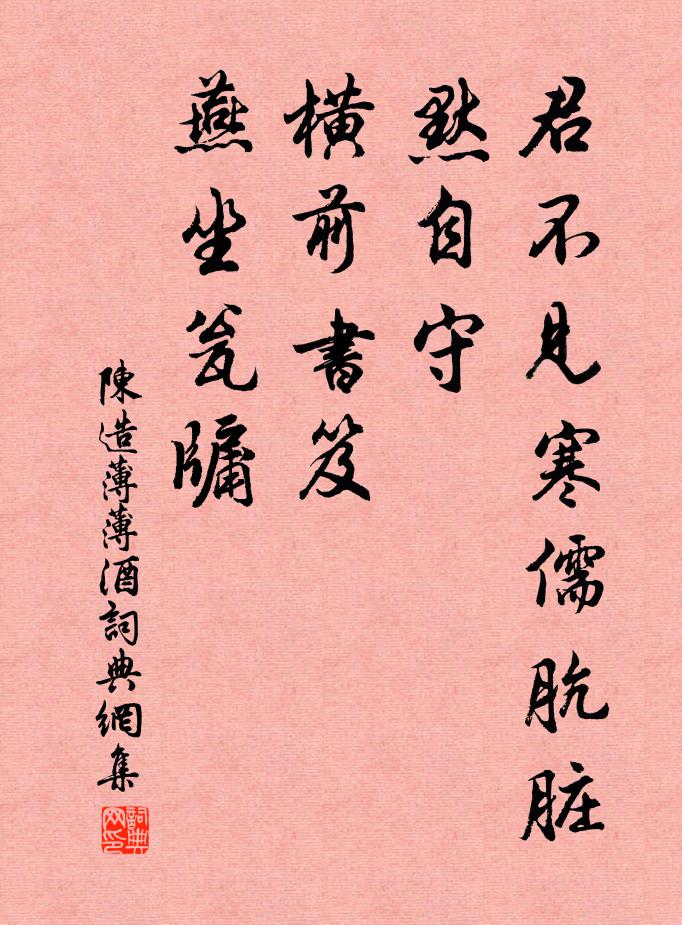 君不見寒儒肮脏
默自守
橫前書笈
燕坐瓮牖
陳造薄薄酒詞典網集
詞典网印